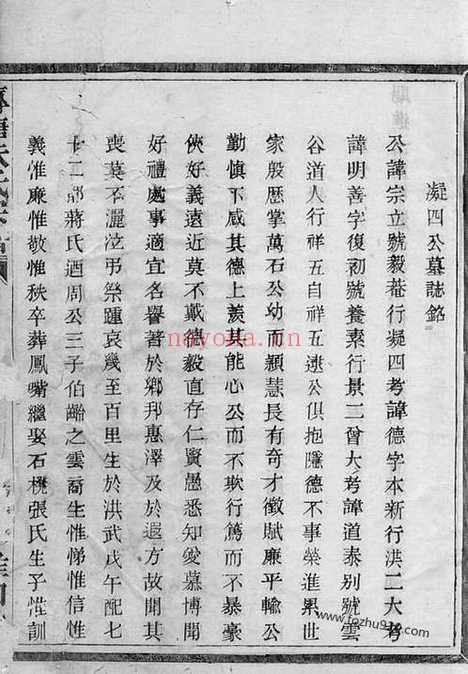 凝四公墓誌銘
公諱宗立號毅菴行凝四考諱德字本新行洪二大考
諱明善字復初號養素行景二曾大考諱道泰別號雲
谷道人行祥五自祥五逮公俱抱隱德不事榮進累世
家殷歷掌萬石公幼而穎慧長有奇才徵賦廉平輸公
勤慎下咸其德上羨其能心公而不欺行篤而不暴豪
俠好義遠近莫不戴德毅直存仁賢愚悉知愛慕博聞
好禮處事適宜名譽著於鄉邦惠澤及於遐方故聞其
喪莫不灑泣弔祭踵哀幾至百里生於洪武戊午配七
十二都蔣氏酒周公三子伯齡之雲裔生惟悌惟信惟
義惟廉惟敬惟秩卒葬鳳嘴繼娶石橋張氏生子惟訓
nayona.cn
www.fozhu920.com